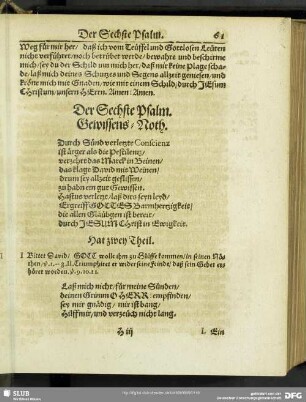 Der Sechste Psalm. 61
Weg für mir her/ daß ich vom Teüffel und Gottlosen Leüten
nicht verführet/ noch betrübet werde/ bewahre und beschirme
mich/ sey du der Schild um mich her/ daß mir keine Plage scha-
de/ laß mich deines Schutzes und Segens allzeit geniesen/ und
kröne mich mit Gnaden/ wie mit einem Schild/ durch JEsum
Christum/ unsern HErrn. Amen! Amen.
Der Sechste Psalm.
Gewissens-Noth.
Durch Sünd verletzte Conscienz
ist ärger als die Pestilentz/
verzehrt das Marck in Beinen/
das klagt David mit Weinen/
drum sey allzeit geflissen/
zu habn ein gut Gewissen.
Hastus verletzt/ laß dirs seyn leyd/
Ergreiff GOTTES Barmhertzigkeit/
die allen Glaubigen ist bereit/
durch JESUM Christ in Ewigkeit.
Hat zwey Theil.
I Bittet David/ GOTT wolle ihm zu Hülffe kommen/ in seinen Nö-
then/ II. Triumphiret er wider seine Feinde/ daß sein Gebet er-
höret worden. v. 9. 10. 11
Laß mich nicht/ für meine Sünden/
deinen Grimm O HERR! empfinden/
sey mir gnädig/ mir ist bang/
Hilff mir/ und verzeüch nicht lang.
H iij 1. Ein
SLUB
Wir führen Wissen.
DFG